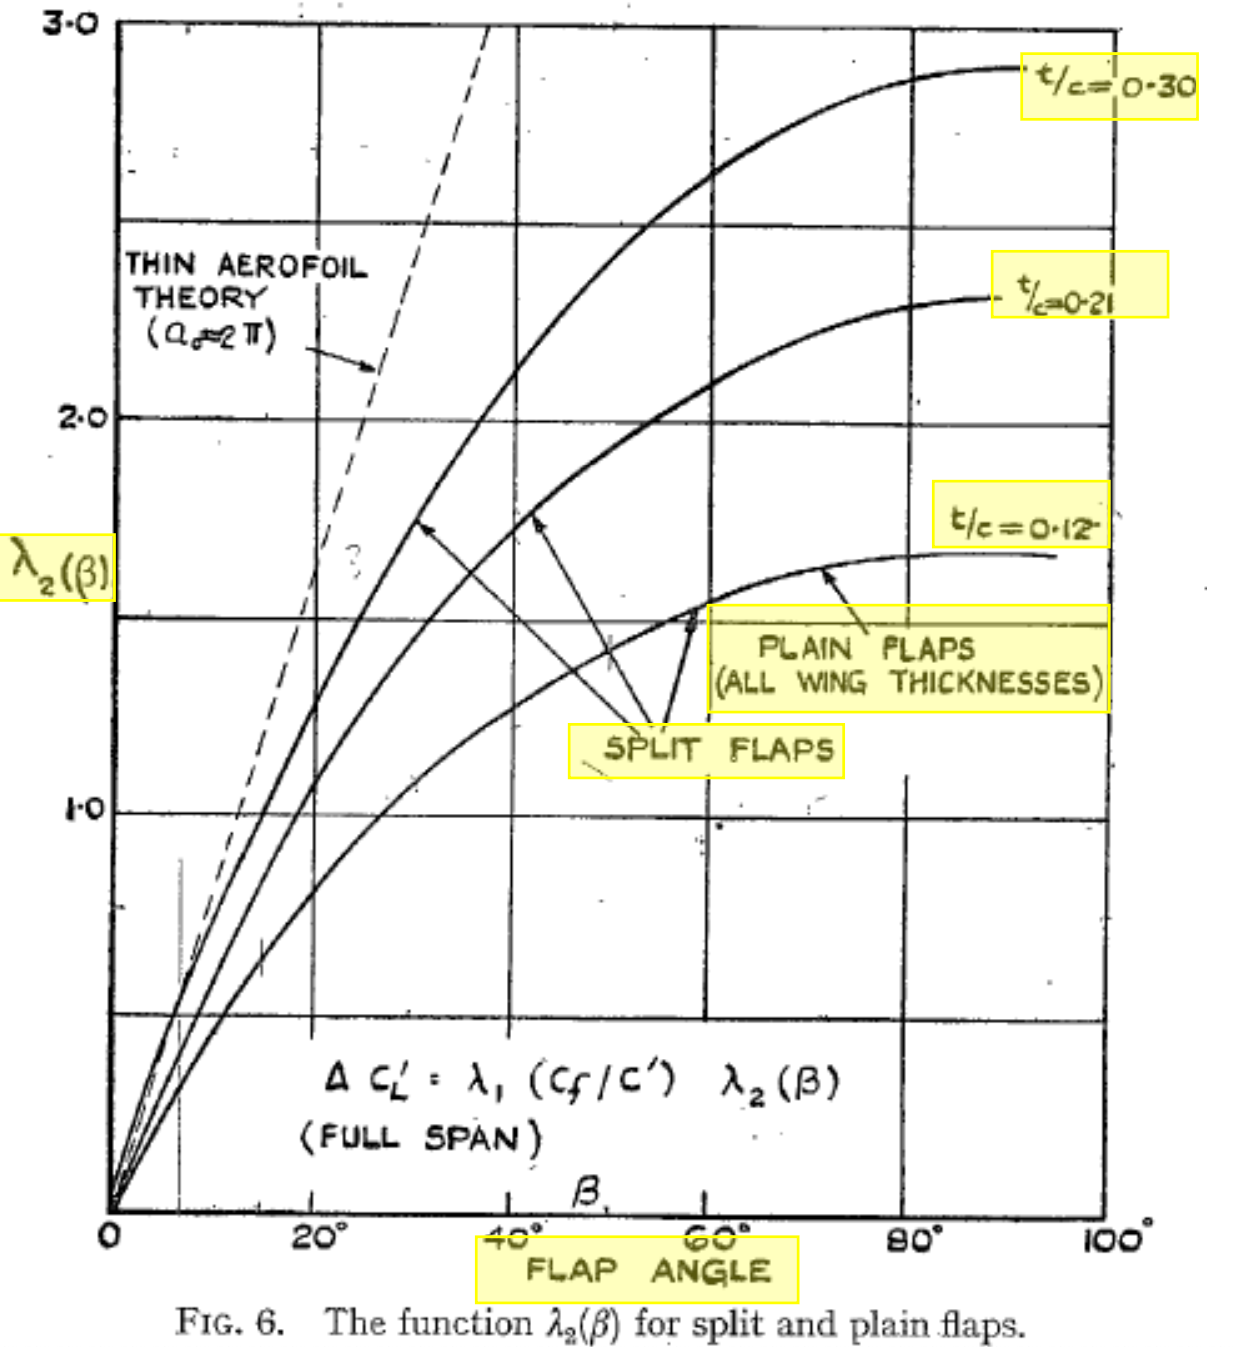 3·0
t/c = 0·30
THIN AEROFOIL
THEORY
(a₀=2π)
t/c=0·21
2·0
t/c = 0·12
λ₂(β)
PLAIN FLAPS
(ALL WING THICKNESSES)
SPLIT FLAPS
1·0
Δ C_L' = λ₁ (C_f/C') λ₂(β)
(FULL SPAN)
β
0 20° 40° 60° 80° 100°
FLAP ANGLE
FIG. 6. The function λ₂(β) for split and plain flaps.